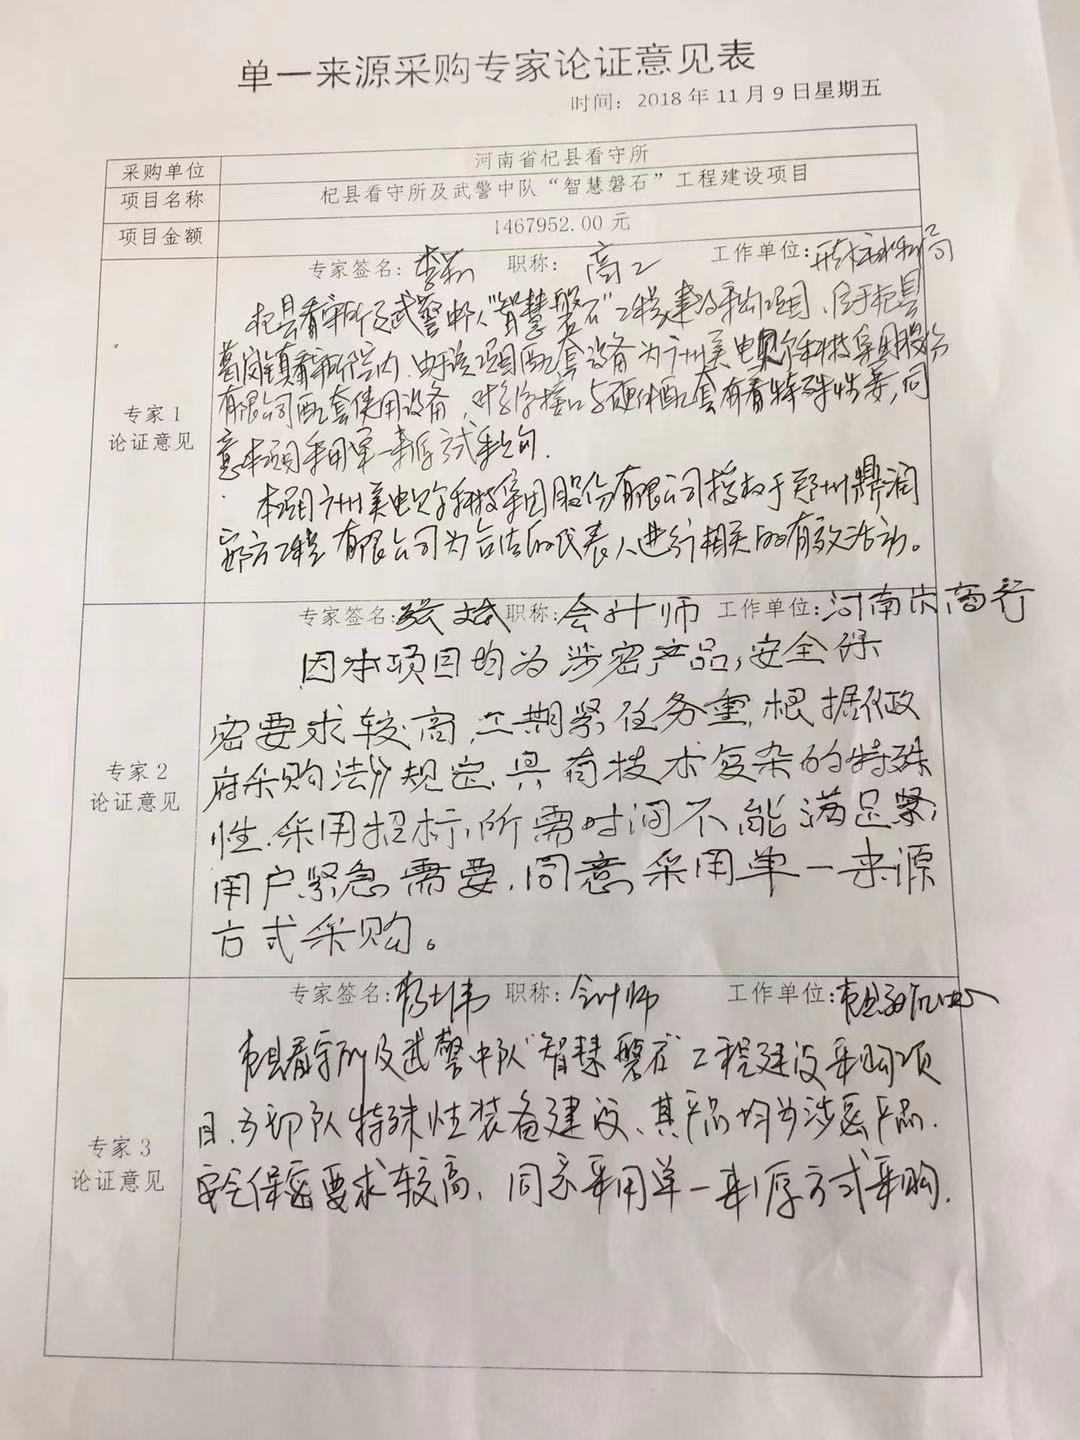 单一来源采购专家论证意见表
时间：2018年11月9日星期五
采购单位 河南省杞县看守所
项目名称 杞县看守所及武警中队“智慧磐石”工程建设项目
项目金额 1467952.00 元
专家签名: 职称: 高工 工作单位: 开封市水利局
杞县看守所及武警中队“智慧磐石”工程建设采购项目，位于杞县
葛岗镇看守所院内，由于该项目配套设备为广州美电贝尔科技集团股份
有限公司配套使用设备，对 接口与硬件配套有着特殊性要，同
意本项目采用单一来源方式采购.
专家1
论证意见
本项目广州美电贝尔科技集团股份有限公司授权于郑州鼎润
工程有限公司为合法的代表人进行相关的有效活动。
专家签名: 职称: 会计师 工作单位: 河南 商行
因本项目均为涉密产品,安全保
密要求较高,工期紧任务重,根据《政
府采购法》规定,具有技术复杂的特殊
专家2
论证意见
性.采用招标所需时间不能满足
用户紧急需要,同意采用单一来源
方式采购。
专家签名: 职称: 会计师 工作单位:
杞县看守所及武警中队“智慧磐石”工程建设采购项
目,为部队特殊性装备建设、其产品均为涉密产品.
专家3
论证意见
安全保密要求较高、同意采用单一来源方式采购.